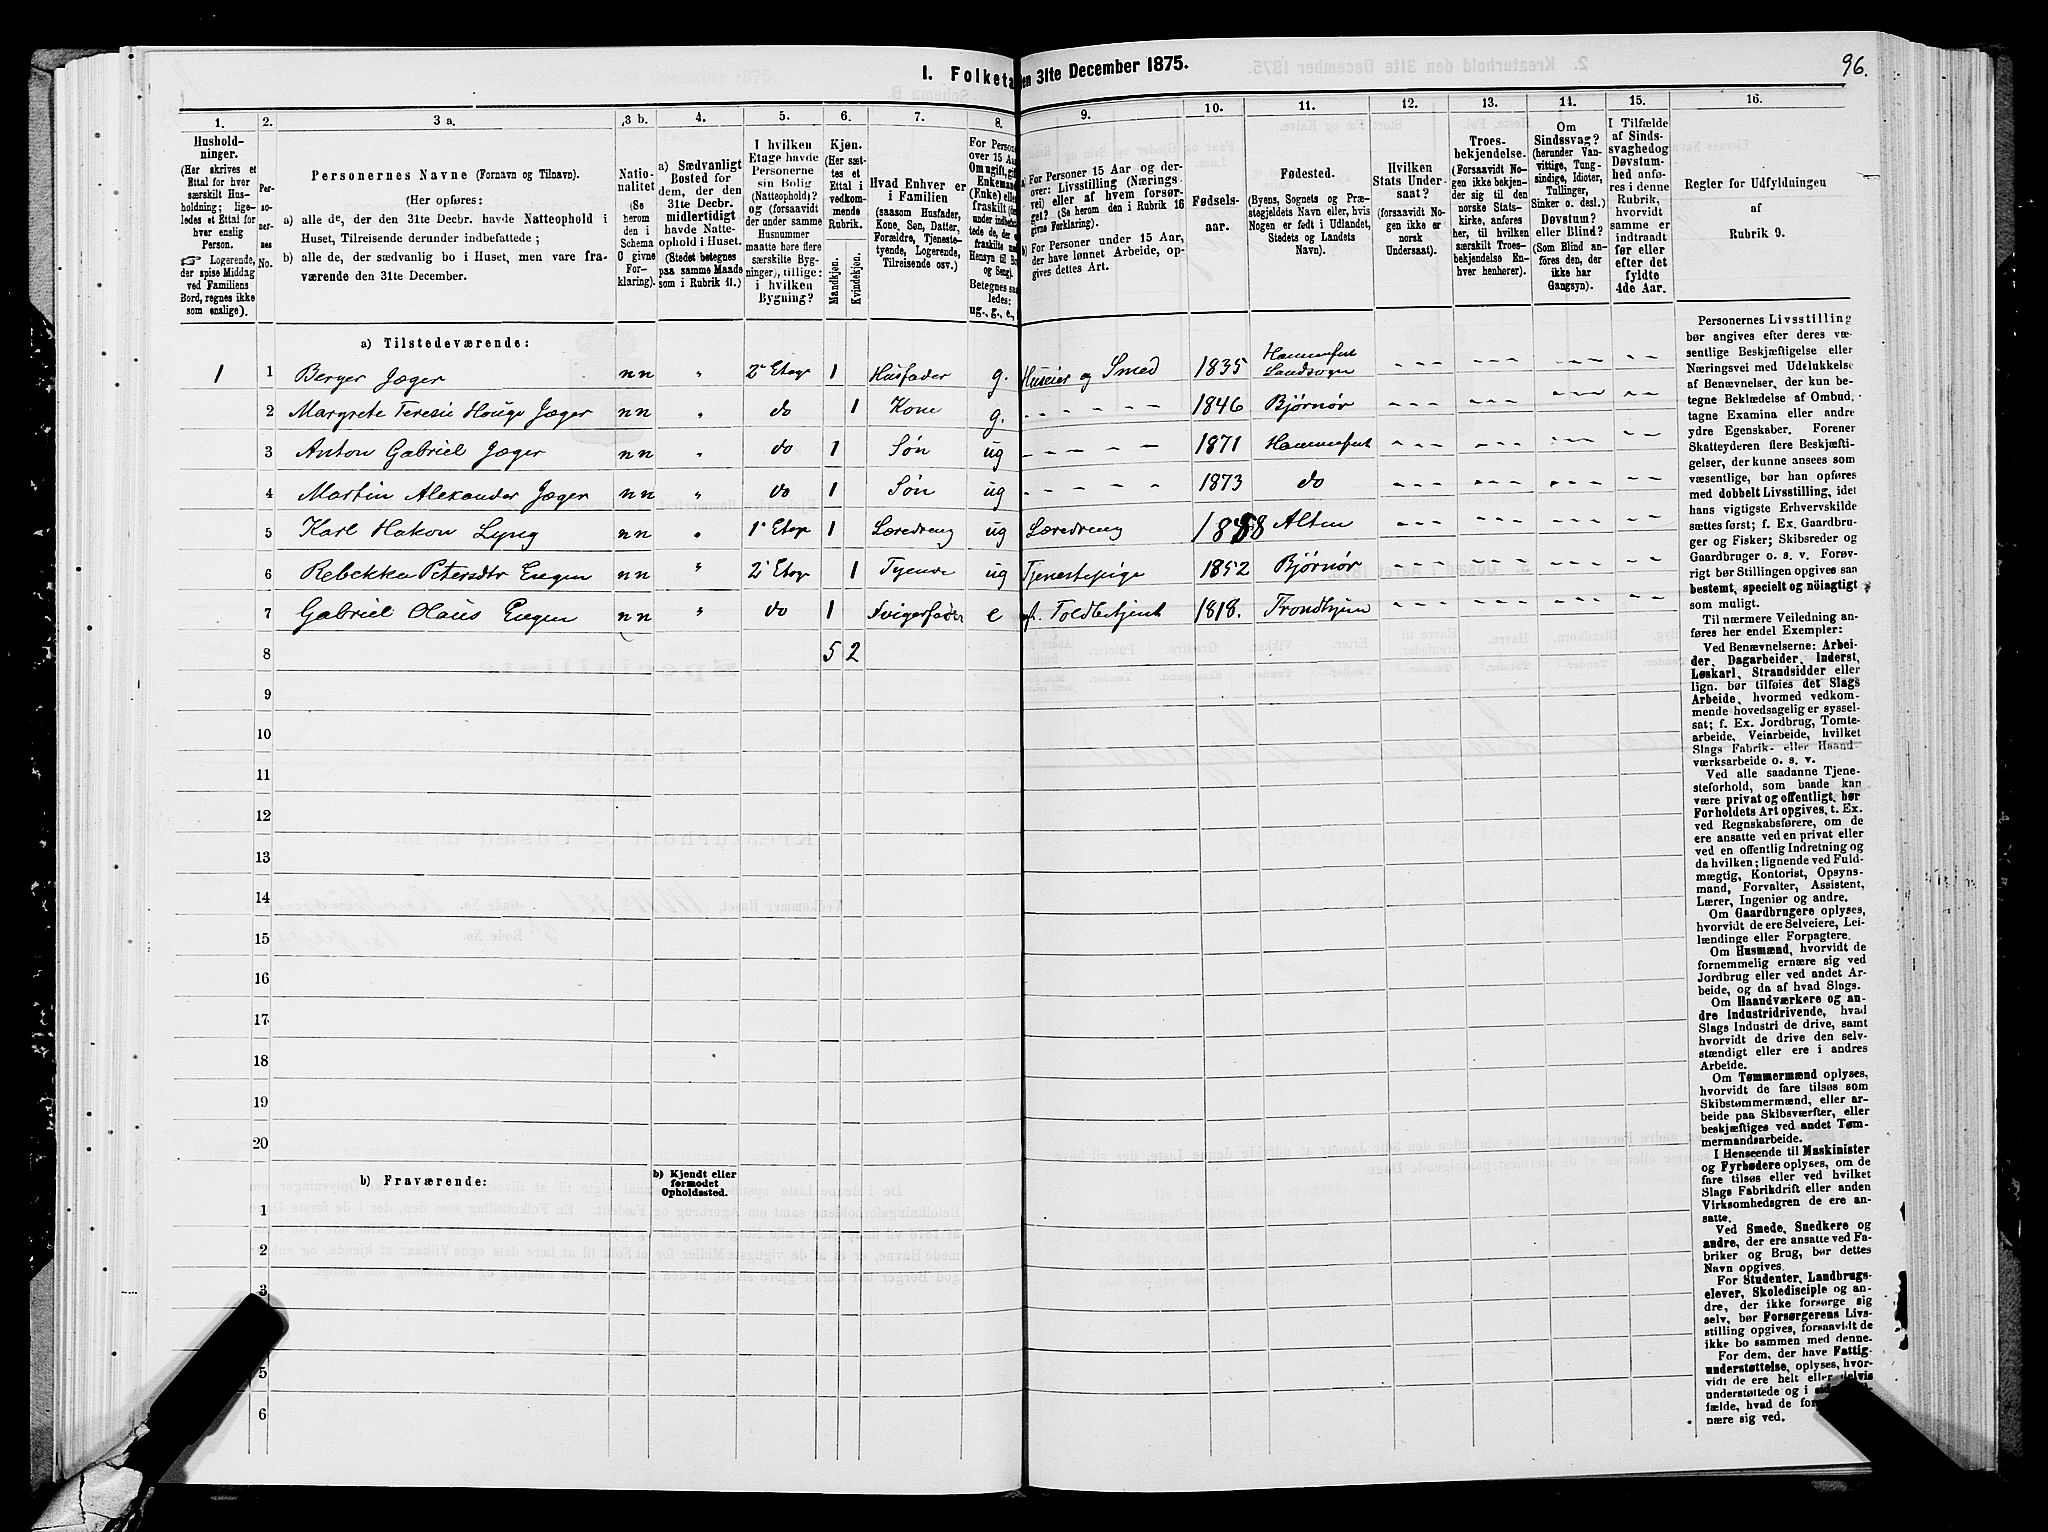 1. Folketa en 31te December 1875.
96.
1.
2.
3 a.
3 b.
4.
5.
6.
7.
8.
9.
10.
11.
12.
13.
14.
15.
16.
Hushold-
ninger.
(Her skrives et
Ettal for hver
særskilt Hus-
holdning; lige-
ledes et Ettal for
hver enslig
Person.
☞ Logerende,
der spise Middag
ved Familiens
Bord, regnes ikke
som enslige).
Per-
so-
ner-
nes
No.
Personernes Navne (Fornavn og Tilnavn).
(Her opføres:
a) alle de, der den 31te Decbr. havde Natteophold i
Huset, Tilreisende derunder indbefattede;
b) alle de, der sædvanlig bo i Huset, men vare fra-
værende den 31te December.
Natio-
nalitet
(Se
herom
den i
Schema
C givne
For-
klaring).
a) Sædvanligt
Bosted for
dem, der den
31te Decbr.
midlertidigt
havde Natte-
ophold i Huset.
(Stedet betegnes
paa samme Maade
som i Rubrik 11.)
I hvilken
Etage havde
Personerne
sin Bolig
(Natteophold)?
og (forsaavidt
der under samme
Husnummer
maatte høre flere
særskilte Byg-
ninger), tillige:
i hvilken
Bygning?
Kjøn.
(Her sæt-
tes et
Ettal i
vedkom-
mende
Rubrik.
Mandkjøn.
Kvindekjøn.
Hvad Enhver er
i Familien
(saasom Husfader,
Kone, Søn, Datter,
Forældre, Tjeneste-
tyende, Logerende,
Tilreisende osv.)
For Persone
over 15 Aar
Om ugift, gift
Enkemand
(Enke) eller
fraskilt
ug., g., e.,
a) For Personer 15 Aar og der-
over: Livsstilling (Nærings-
vei) eller af hvem forsør-
get? (Se herom den i Rubrik 16
givne Forklaring).
b) For Personer under 15 Aar,
der have lønnet Arbeide, op-
gives dettes Art.
Fødsels-
aar.
Fødested.
(Byens, Sognets og Præ-
stegjeldets Navn eller, hvis
Nogen er født i Udlandet,
Stedets og Landets
Navn).
Hvilken
Stats Under-
saat?
(forsaavidt No-
gen ikke er
norsk
Undersaat).
Troes-
bekjendelse.
(Forsaavidt No-
gen ikke bekjen-
der sig til den
norske Stats-
kirke, anføres
her, til hvilken
særskilt Troes-
bekjendelse En-
hver henhører).
Om
Sindssvag?
(herunder Van-
vittige, Tung-
sindige, Idioter,
Tullinger,
Sinker o. desl.)
Døvstum?
eller Blind?
(Som Blind an-
føres den, der
ikke har
Gangsyn).
I Tilfælde
af Sinds-
svaghed og
Døvstum-
hed anfø-
res i denne
Rubrik,
hvorvidt
samme er
indtraadt
før eller
efter det
fyldte
4de Aar.
Regler for Udfyldningen
af
Rubrik 9.
a) Tilstedeværende:
1 1 Berger Jæger nn " 2 Etage 1 Husfader g. Huseier og Smed 1835 Hammerfest Landsogn
2 Margrete Teresie Houge Jæger nn " do 1 Kone g. 1846 Bjørnør
3 Anton Gabriel Jæger nn " do 1 Søn ug 1871 Hammerfest
4 Martin Alexander Jæger nn " do 1 Søn ug 1873 do
5 Karl Hakon Lyng nn " 1 Etage 1 Læredreng ug Læredreng 1858 Alten
6 Rebekka Petersdtr Engen nn " 2 Etage 1 Tyende ug Tjenestepige 1852 Bjørnør
7 Gabriel Olaus Engen nn " do 1 Svigerfader e f. Toldbetjent 1818. Trondhjem
8 5 2
9
10
11
12
13
14
15
16
17
18
19
20
b) Fraværende:
b) Kjendt eller
formodet
Opholdssted.
1
2
3
5
6
Personernes Livsstilling
bør angives efter deres væ-
sentlige Beskjæftigelse eller
Næringsvei med Udelukkelse
af Benævnelser, der kun be-
tegne Beklædelse af Ombud,
tagne Examina eller andre
ydre Egenskaber. Forener
Skatteyderen flere Beskjæfti-
gelser, der kunne ansees som
væsentlige, bør han opføres
med dobbelt Livsstilling, idet
hans vigtigste Erhvervskilde
sættes først; f. Ex. Gaardbru-
ger og Fisker; Skibsreder og
Gaardbruger o. s. v. Forøv-
rigt bør Stillingen opgives saa
bestemt, specielt og nöiagtigt
som muligt.
Til nærmere Veiledning an-
føres her endel Exempler:
Ved Benævnelserne: Arbei-
der, Dagarbeider, Inderst,
Løskarl, Strandsidder eller
lign. bør tilføies det Slags
Arbeide, hvormed vedkom-
mende hovedsagelig er syssel-
sat; f. Ex. Jordbrug, Tomte-
arbeide, Veiarbeide, hvilket
Slags Fabrik- eller Haand
værksarbeide o. s. v.
Ved alle saadanne Tjene-
steforhold, som baade kan
være privat og offentligt, bør
Forholdets Art opgives, t. Ex.
ved Regnskabsførere, om de
ere ansatte ved en privat eller
ved en offentlig Indretning og
da hvilken; lignende ved Fuld-
mægtig, Kontorist, Opsyns-
mand, Forvalter, Assistent,
Lærer, Ingeniør og andre.
Om Gaardbrugere oplyses,
hvorvidt de ere Selveiere, Lei-
lændinge eller Forpagtere.
Om Husmænd, hvorvidt de
fornemmelig ernære sig ved
Jordbrug eller ved andet Ar-
beide, og da af hvad Slags.
Om Haandværkere og an-
dre Industridrivende, hvad
Slags Industri de drive, samt
hvorvidt de drive den selv-
stændigt eller ere i andres
Arbeide.
Om Tømmermænd oplyses,
hvorvidt de fare tilsøs som
Skibstømmermænd, eller ar-
beide paa Skibsværfter, eller
beskjæftiges ved andet Tøm-
mermandsarbeide.
I Henseende til Maskinister
og Fyrbødere oplyses, om de
fare tilsøs eller ved hvilket
Slags Fabrikdrift eller anden
Virksomhedsgren de ere an-
satte.
Ved Smede, Snedkere og
andre, der ere ansatte ved Fa-
briker og Brug, bør dettes
Navn opgives.
For Studenter, Landbrugs-
elever, Skoledisciple og an-
dre, der ikke forsørge sig
selv, bør Forsørgerens Livs-
stilling opgives, forsaavidt de
ikke bo sammen med denne.
For dem, der have Fattig-
understøttelse, oplyses, hvor-
vidt de ere helt eller delvis
understøttede og i
fælde, hvad de
nære sig ved.